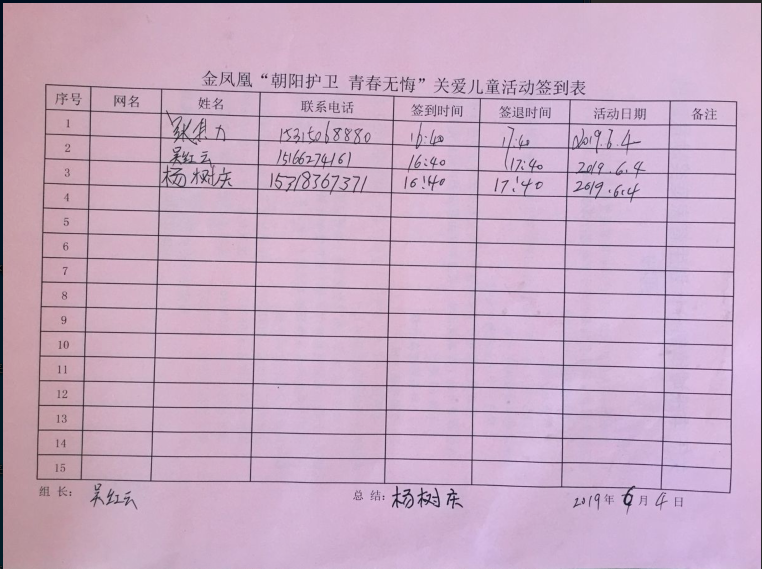 金凤凰“朝阳护卫 青春无悔”关爱儿童活动签到表
序号 网名 姓名 联系电话 签到时间 签退时间 活动日期 备注
1 张 力 15315068880 16:40 17:40 2019.6.4
2 吴红云 15166274161 16:40 17:40 2019.6.4
3 杨树庆 15318367371 16:40 17:40 2019.6.4
4
5
6
7
8
9
10
11
12
13
14
15
组 长: 吴红云 总 结: 杨树庆 2019年 6月 4日